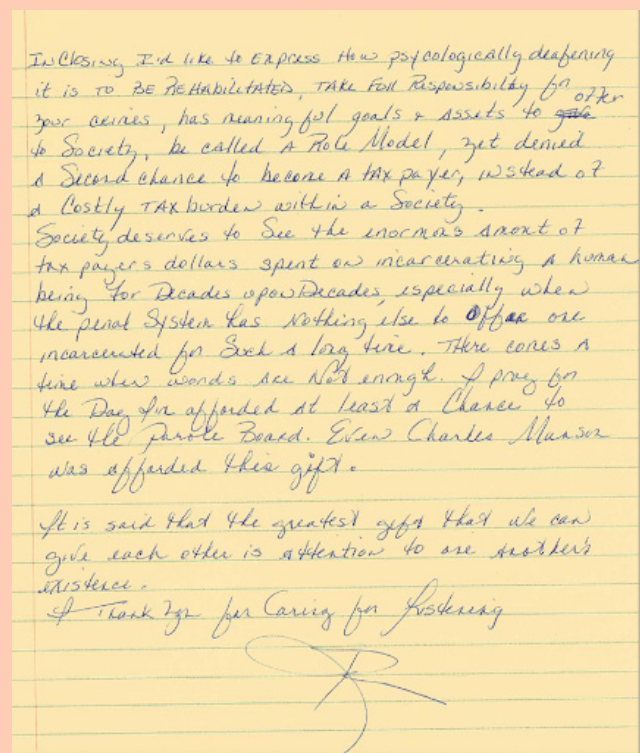 In Closing I'd like to express How psycologically deafening
it is TO BE REHABILITATED, TAKE FULL Responsibility for
your crimes, has meaningful goals & Assets to offer
to Society, be called A Role Model, yet denied
A Second chance to become A tax payer, instead of
a Costly TAX burden within a Society.
Society deserves to See the enormous Amont of
tax payers dollars spent on incarcerating A human
being for Decades upon Decades, especially when
the penal System has Nothing else to offer one
incarcerated for Such A long time. There comes A
time when words are Not enough. I pray for
the Day I'm afforded at least a Chance to
see the Parole Board. Even Charles Manson
was afforded this gift.
It is said that the greatest gift that we can
give each other is Attention to one another's
existence.
I Thank you for Caring for Listening